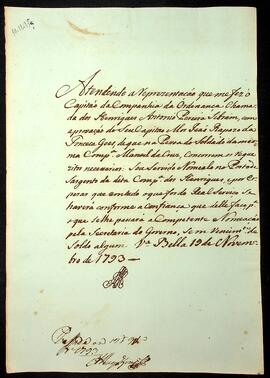 Attendendo a Reprezentaçaõ que me fez o
Capitaõ da Companhia da Ordenança chama-
da dos Henriques Antonio Pereira com
aprovaçaõ do Seu Capitaõ Mor Joaõ Rapozo da
Fonceca Goes, de que na Pessoa do Soldado da mes-
ma Comp.ª Manoel da Cruz, concorrem os requi-
zitos necessarios: Sou Servido Nomealo no Posto de
Sargento da dita Comp.ª dos Henriques, e por es-
perar que em tudo o que for do Real Serviço se
haverá conforme a confiança que delle faço
que se lhe passará a Competente Nomeaçaõ
pela Secretaria do Governo, sem vencim.to de
Soldo algum. V.ª Bella 19 de Novem-
bro de 1793
1793